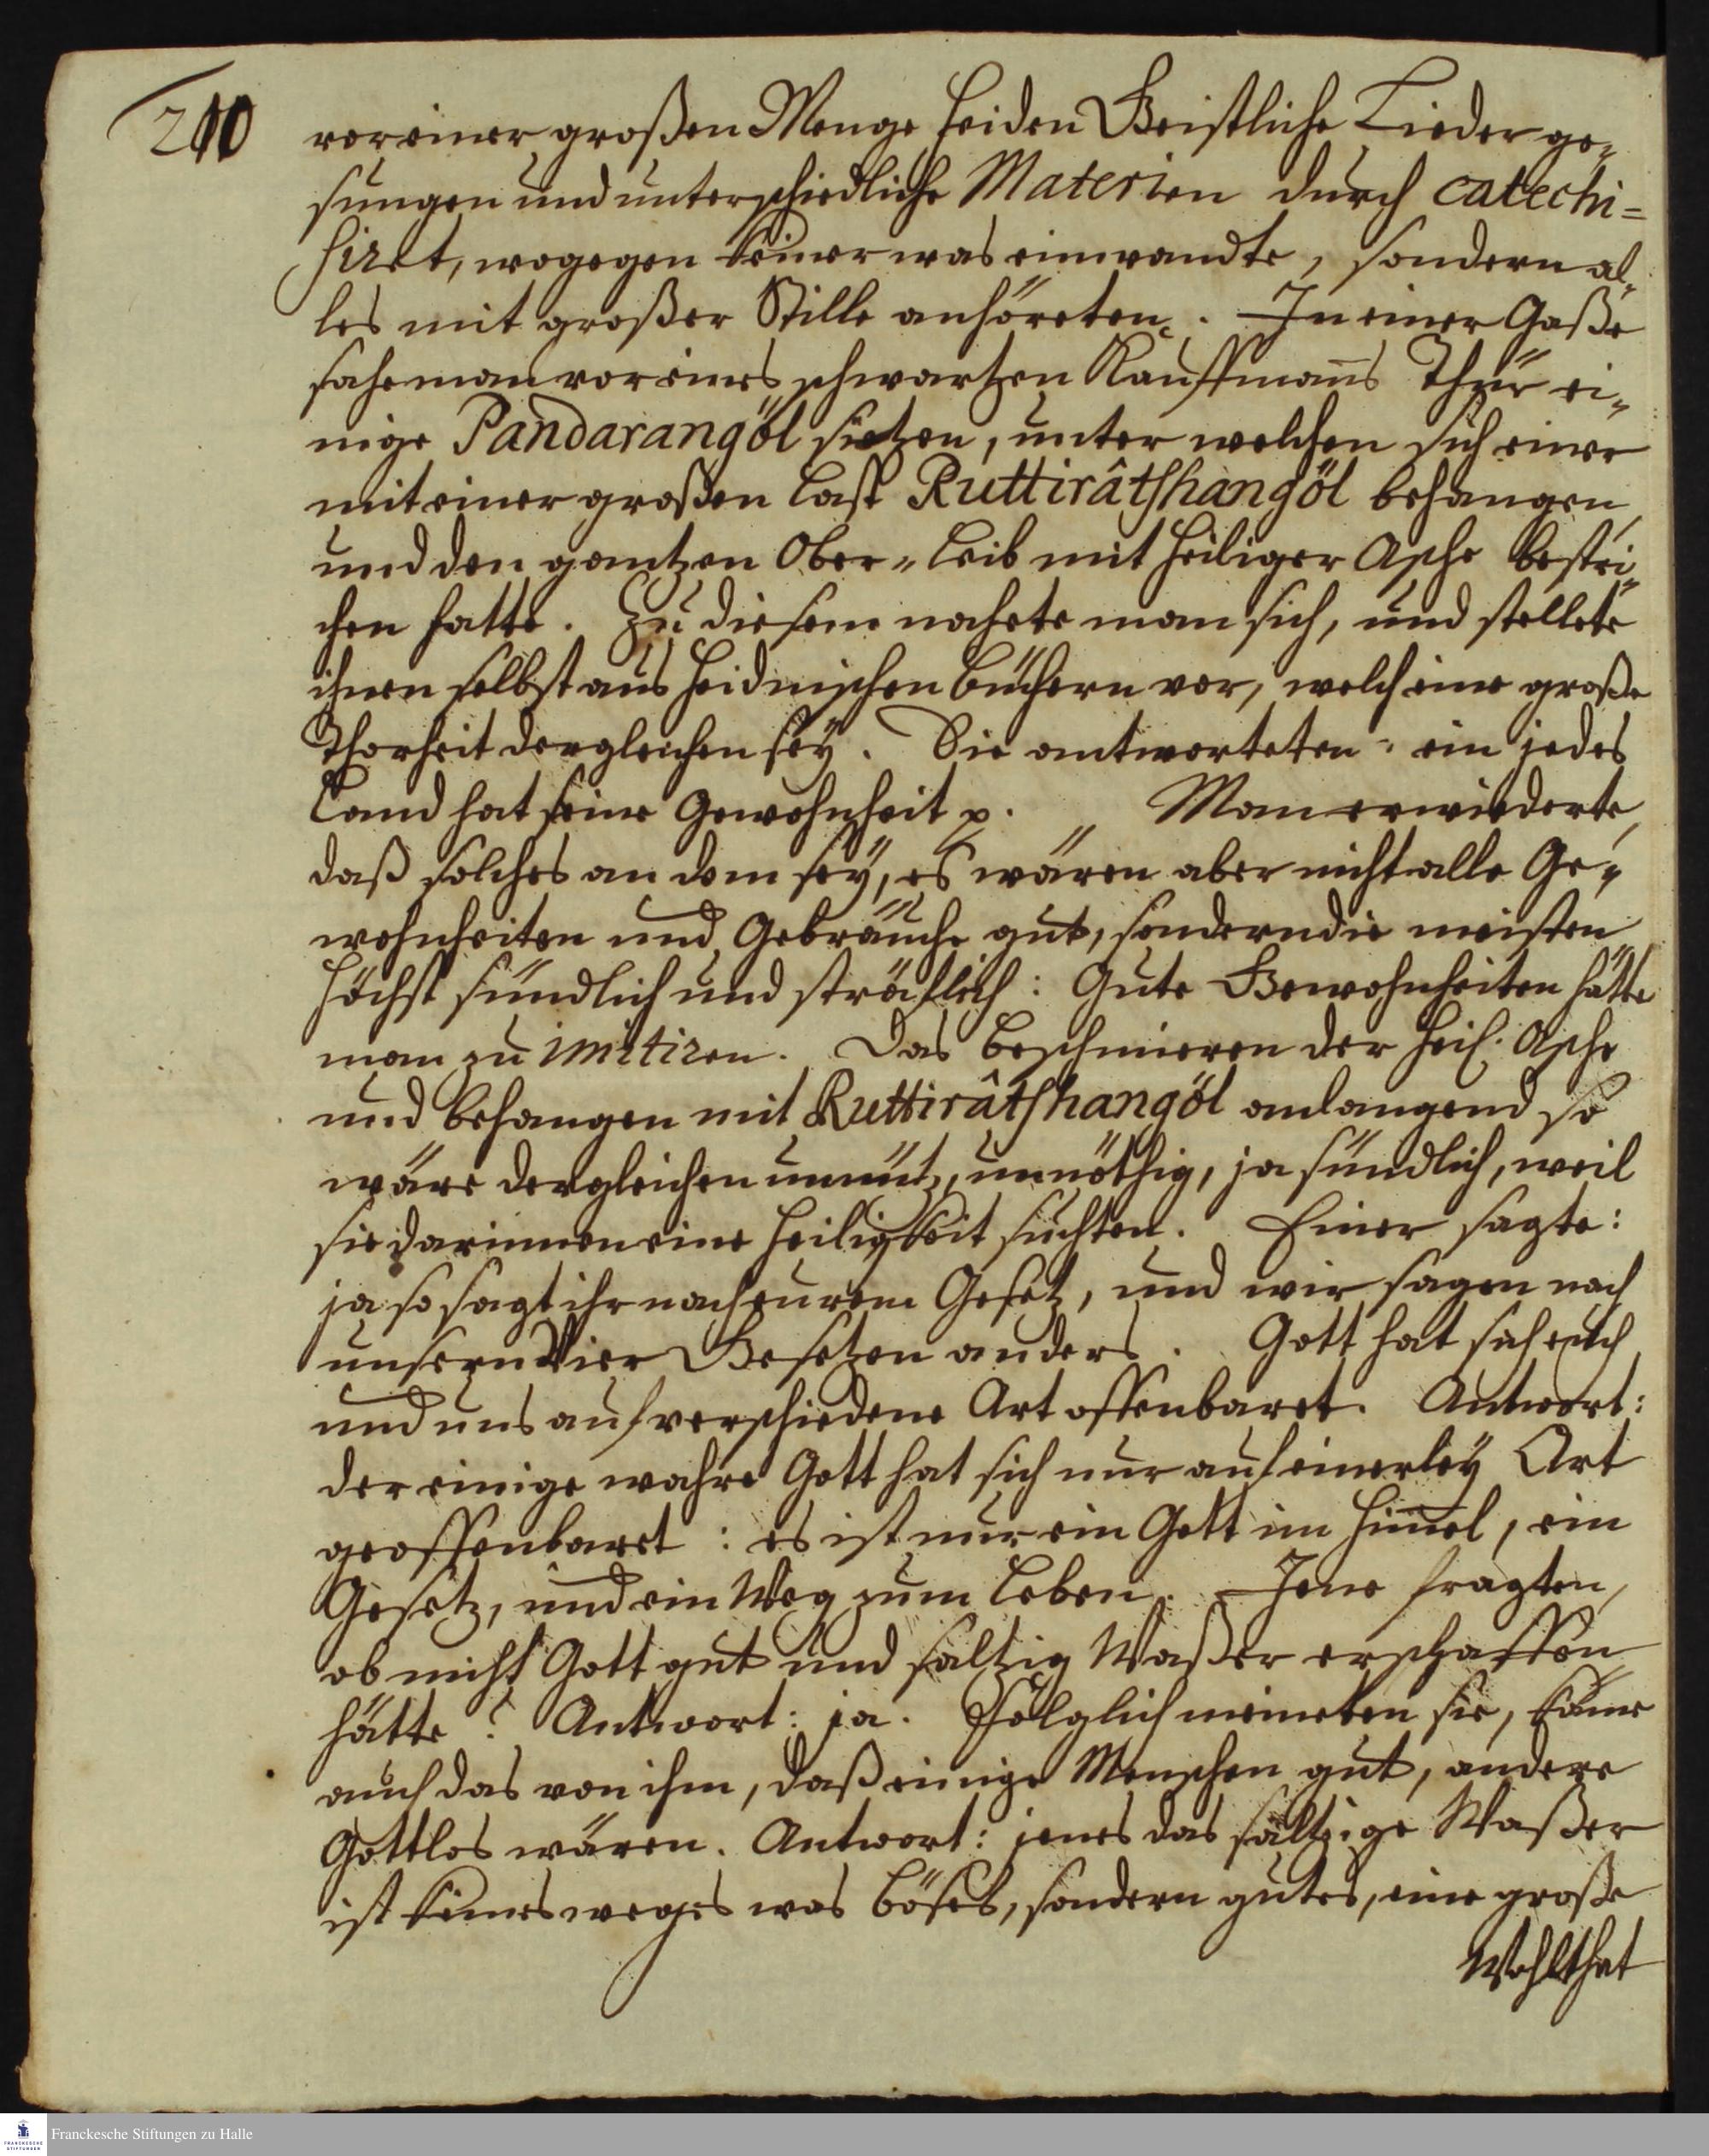 210
vor einer großen Menge Heiden Geistliche Lieder ge-
sungen und unterschiedliche Materien durch catechi=
siret, wogegen keiner was einwandte, sondern al-
les mit großer Stille anhöreten. In einer Gaße
sahe man vor eines schwartzen Kauffmanns Thür ei-
nige Pandarangöl sietzen, unter welchen sich einer
mit einer großen Last Ruttirâtshangöl behangen,
und den gantzen Ober-Leib mit heiliger Asche bestri-
chen hatte. Zu diesem nahete man sich, und stellete
ihnen selbst aus Heidnischen Büchern vor, welch eine große
Thorheit dergleichen seÿ. Sie antworteten: ein jedes
Land hat seine Gewohnheit p. Man erwiederte,
daß solches an dem seÿ, es wären aber nicht alle Ge-
wohnheiten und Gebräuche gut, sondern die meisten
höchst sündlich und sträflich: Gute Gewohnheiten hätte
man zu imitiren. Das beschmieren der heil. Asche
und behangen mit Ruttirâtshangöl anlangend so
wäre dergleichen unnütz, unnöthig, ja sündlich, weil
sie darinnen eine Heiligkeit suchten. Einer sagte:
ja so sagt ihr nach eurem Gesetz, und wir sagen nach
unsern Vier Gesetzen anders. Gott hat sich euch
und uns auf verschiedene Art offenbaret. Antwort:
der einige wahre Gott hat sich nur auf einerleÿ Art
geoffenbaret: es ist nur ein Gott im Himmel, ein
Gesetz, und ein Weg zum Leben. Jene fragten,
ob nicht Gott gut und saltzig Waßer erschaffen
hätte? Antwort: ja. Folglich meineten sie, käme
auch das von ihm, daß einige Menschen gut, andere
Gottlos wären. Antwort: jenes das saltzige Waßer
ist keines weges was böses, sondern gutes, eine große
Wohlthat
Franckesche Stiftungen zu Halle